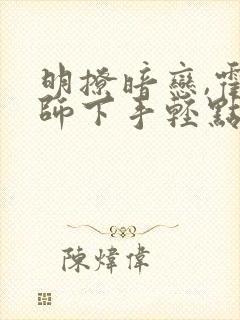 明撩暗戀,霍
師下手輕點
陳煒偉